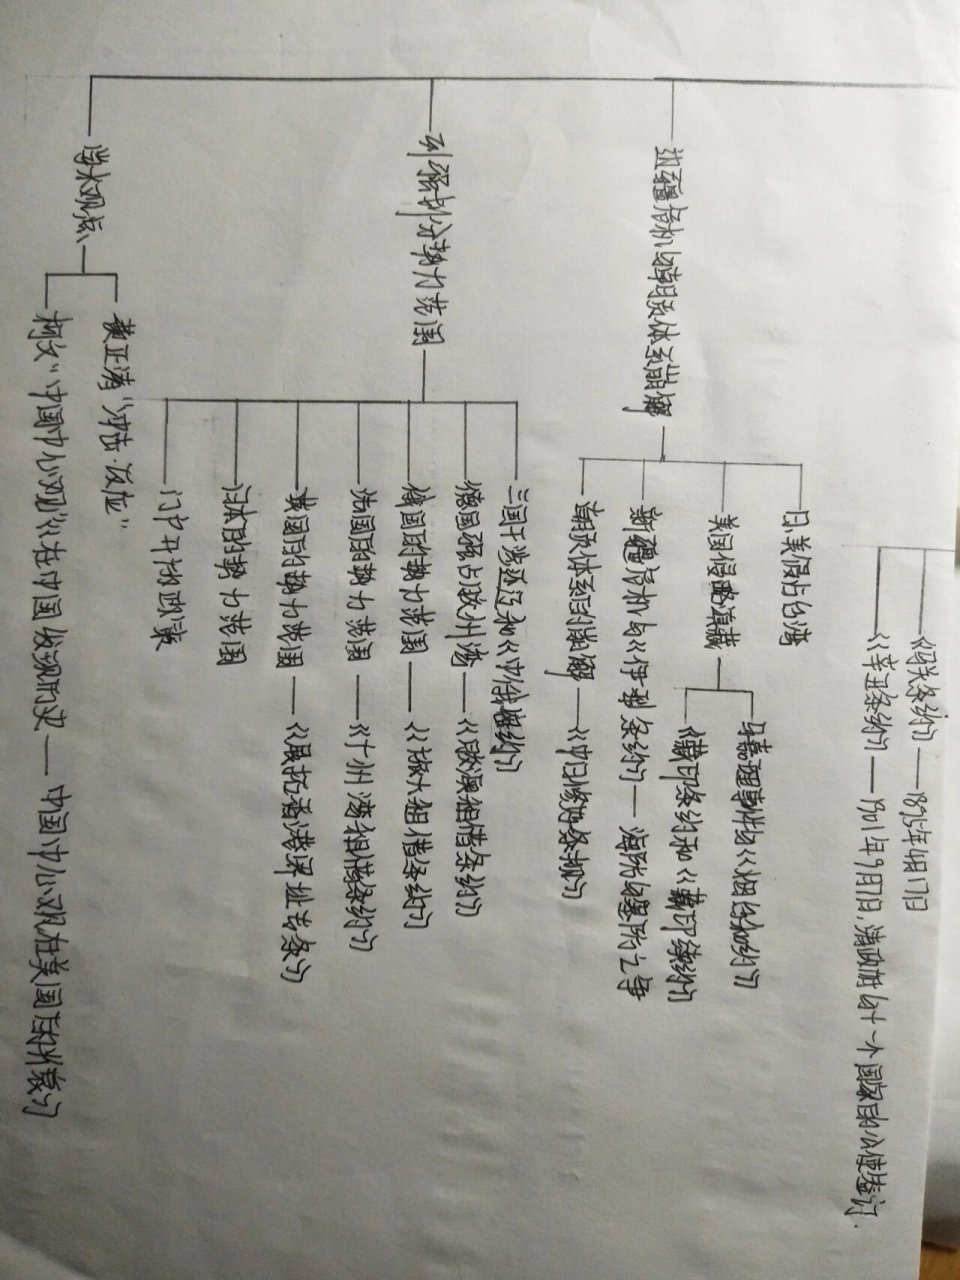 《马关条约》——1895年4月17日
《辛丑条约》——1901年9月7日,清政府与十一个国家的公使签订.
边疆危机与宗藩体系崩解
日,美侵占台湾
英国侵略滇藏
马嘉理事件与《烟台条约》
《藏印条约》和《藏印续约》
新疆危机与《伊犁条约》——海防与塞防之争
宗藩体系的崩解——《中日修好条规》
列强划分势力范围
三国干涉还辽和《中俄密约》
德国强占胶州湾——《胶澳租借条约》
俄国的势力范围——《旅大租借条约》
法国的势力范围——《广州湾租借条约》
英国的势力范围——《展拓香港界址专条》
日本的势力范围
门户开放政策
学术观点
费正清"冲击·反应"
柯文"中国中心观"《在中国发现历史——中国中心观在美国的兴起》